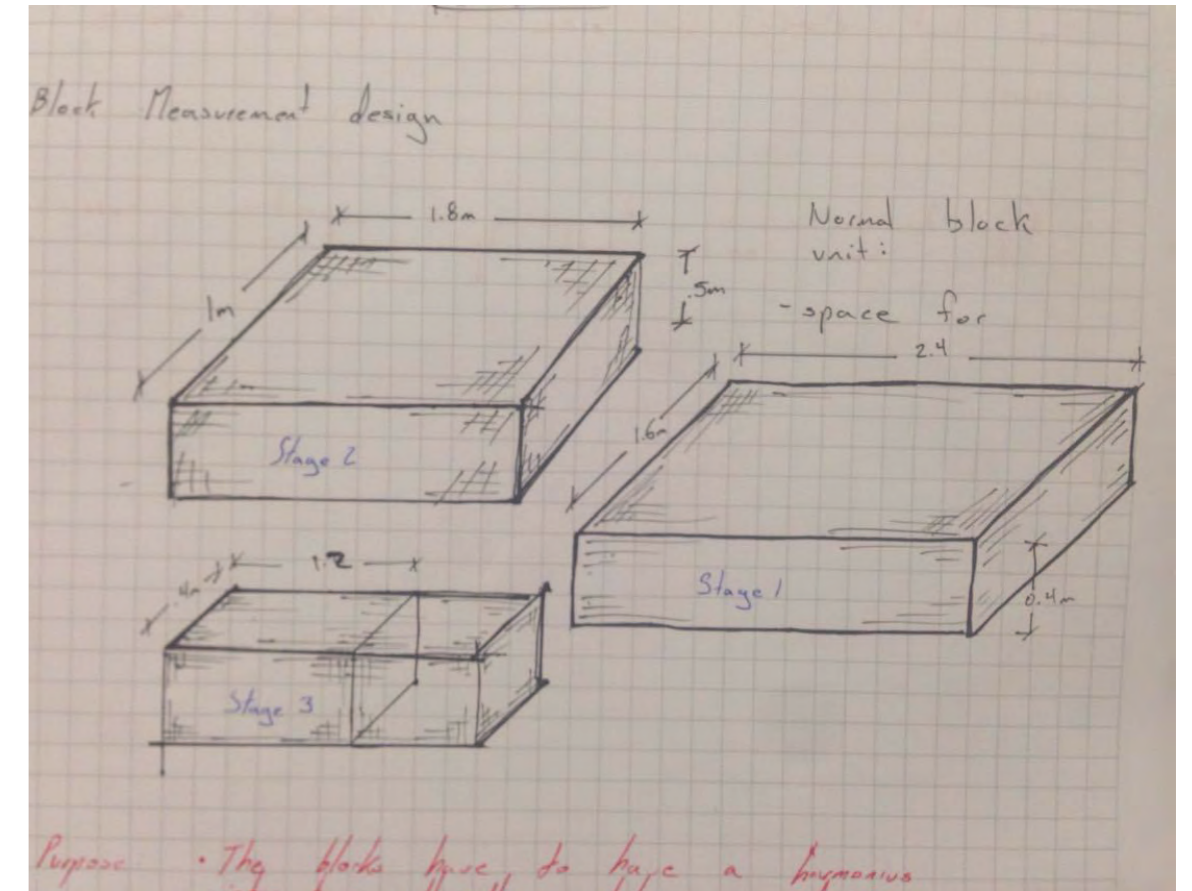 Block Measurement design
1.8m
Normal block
unit:
1m
.5m
-space for
2.4
1.6m
Stage 2
1.2
.4m
Stage 1
0.4m
Stage 3
Purpose • The blocks have to have a harmonius